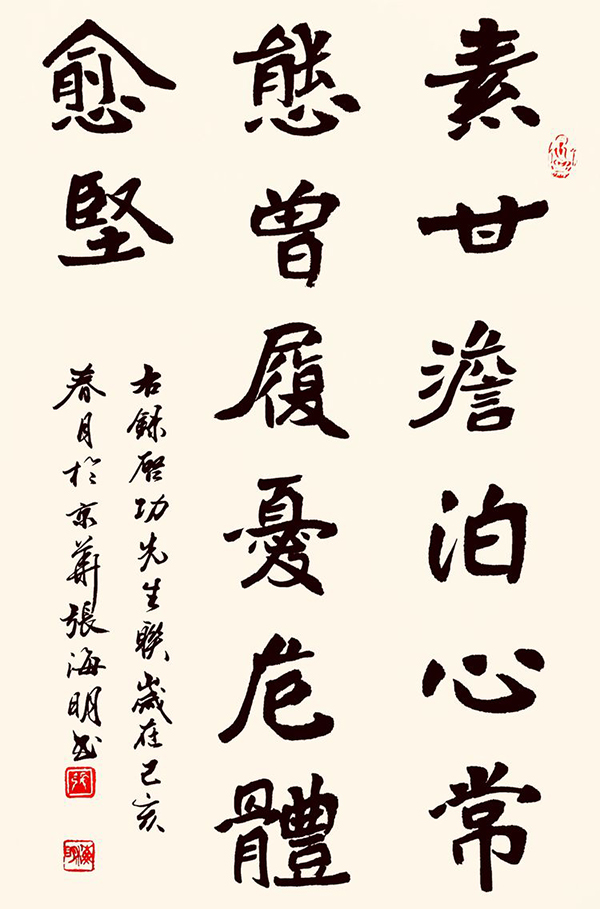 素甘澹泊心常
態曾履憂危體
愈堅
右錄啓功先生聯歲在己亥
春月於京華張海明書